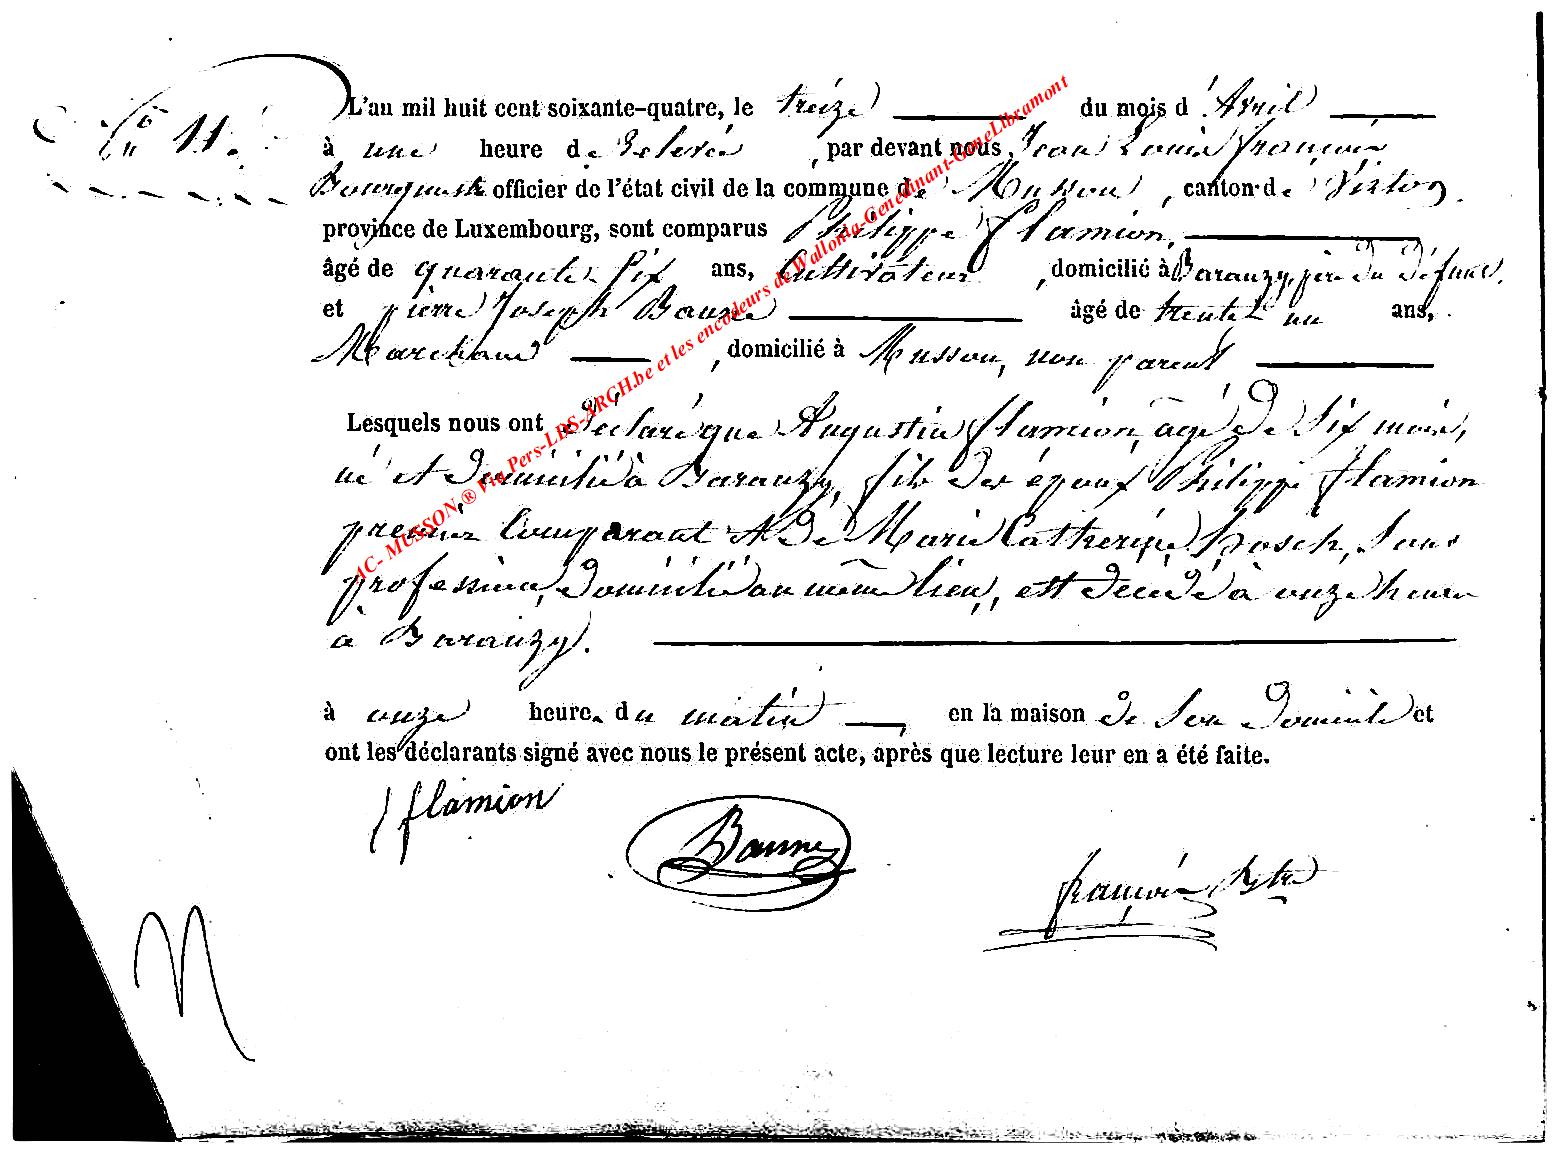 N° 11.
L'an mil huit cent soixante-quatre, le treize du mois d'Avril
à une heure de relevée, par devant nous Jean Louis françois
Bourgmestre officier de l'état civil de la commune de Musson, canton de Virton,
province de Luxembourg, sont comparus Philippe flamion,
âgé de quarante six ans, Cultivateur, domicilié à Baranzy, père du défunt.
et pierre Joseph Bausne âgé de trente un ans,
Marchand, domicilié à Musson, non parent
Lesquels nous ont déclaré que Augustin flamion, agé de Six mois,
né et domicilié à Baranzy, fils des époux Philippe flamion
premier Comparant et de Marie Catherine hosch, Sans
profession, domicilié au même lieu, est décédé à onze heures
à Baranzy.
à onze heure. du matin, en la maison de Son domicile et
ont les déclarants signé avec nous le présent acte, après que lecture leur en a été faite.
flamion
Bausne
françois
AC- MUSSON ® Via Pers-LDS-ARCH.be et les encodeurs de Wallonia-Genedinant-GeneLibramont